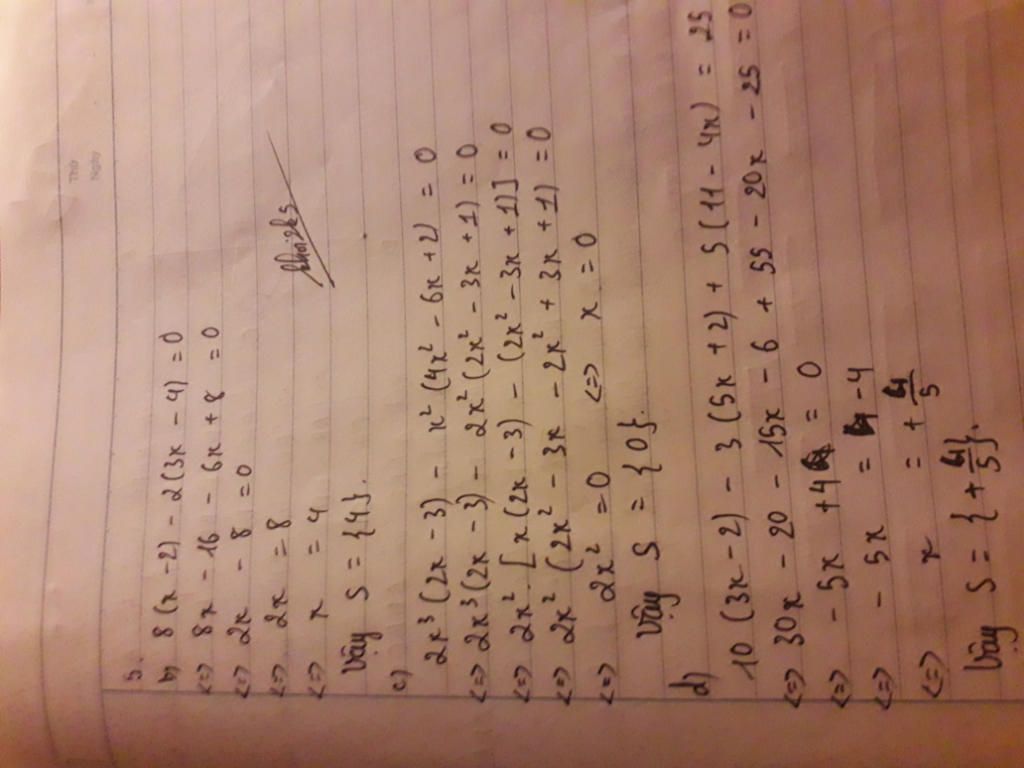 Thứ
Ngày
5.
b) 8(x - 2) - 2(3x - 4) = 0
<=> 8x - 16 - 6x + 8 = 0
<=> 2x - 8 = 0
<=> 2x = 8
<=> x = 4
Vậy S = {4}.
c)
2x³(2x - 3) - x²(4x² - 6x + 2) = 0
<=> 2x³(2x - 3) - 2x²(2x² - 3x + 1) = 0
<=> 2x².[x(2x - 3) - (2x² - 3x + 1)] = 0
<=> 2x²(2x² - 3x - 2x² + 3x + 1) = 0
<=> 2x² = 0 <=> x = 0
Vậy S = {0}.
d)
10(3x - 2) - 3(5x + 2) + 5(11 - 4x) = 25
<=> 30x - 20 - 15x - 6 + 55 - 20x - 25 = 0
<=> - 5x + 4 = 0
<=> - 5x = - 4
<=> x = + 4/5
Vậy S = {+ 4/5}.